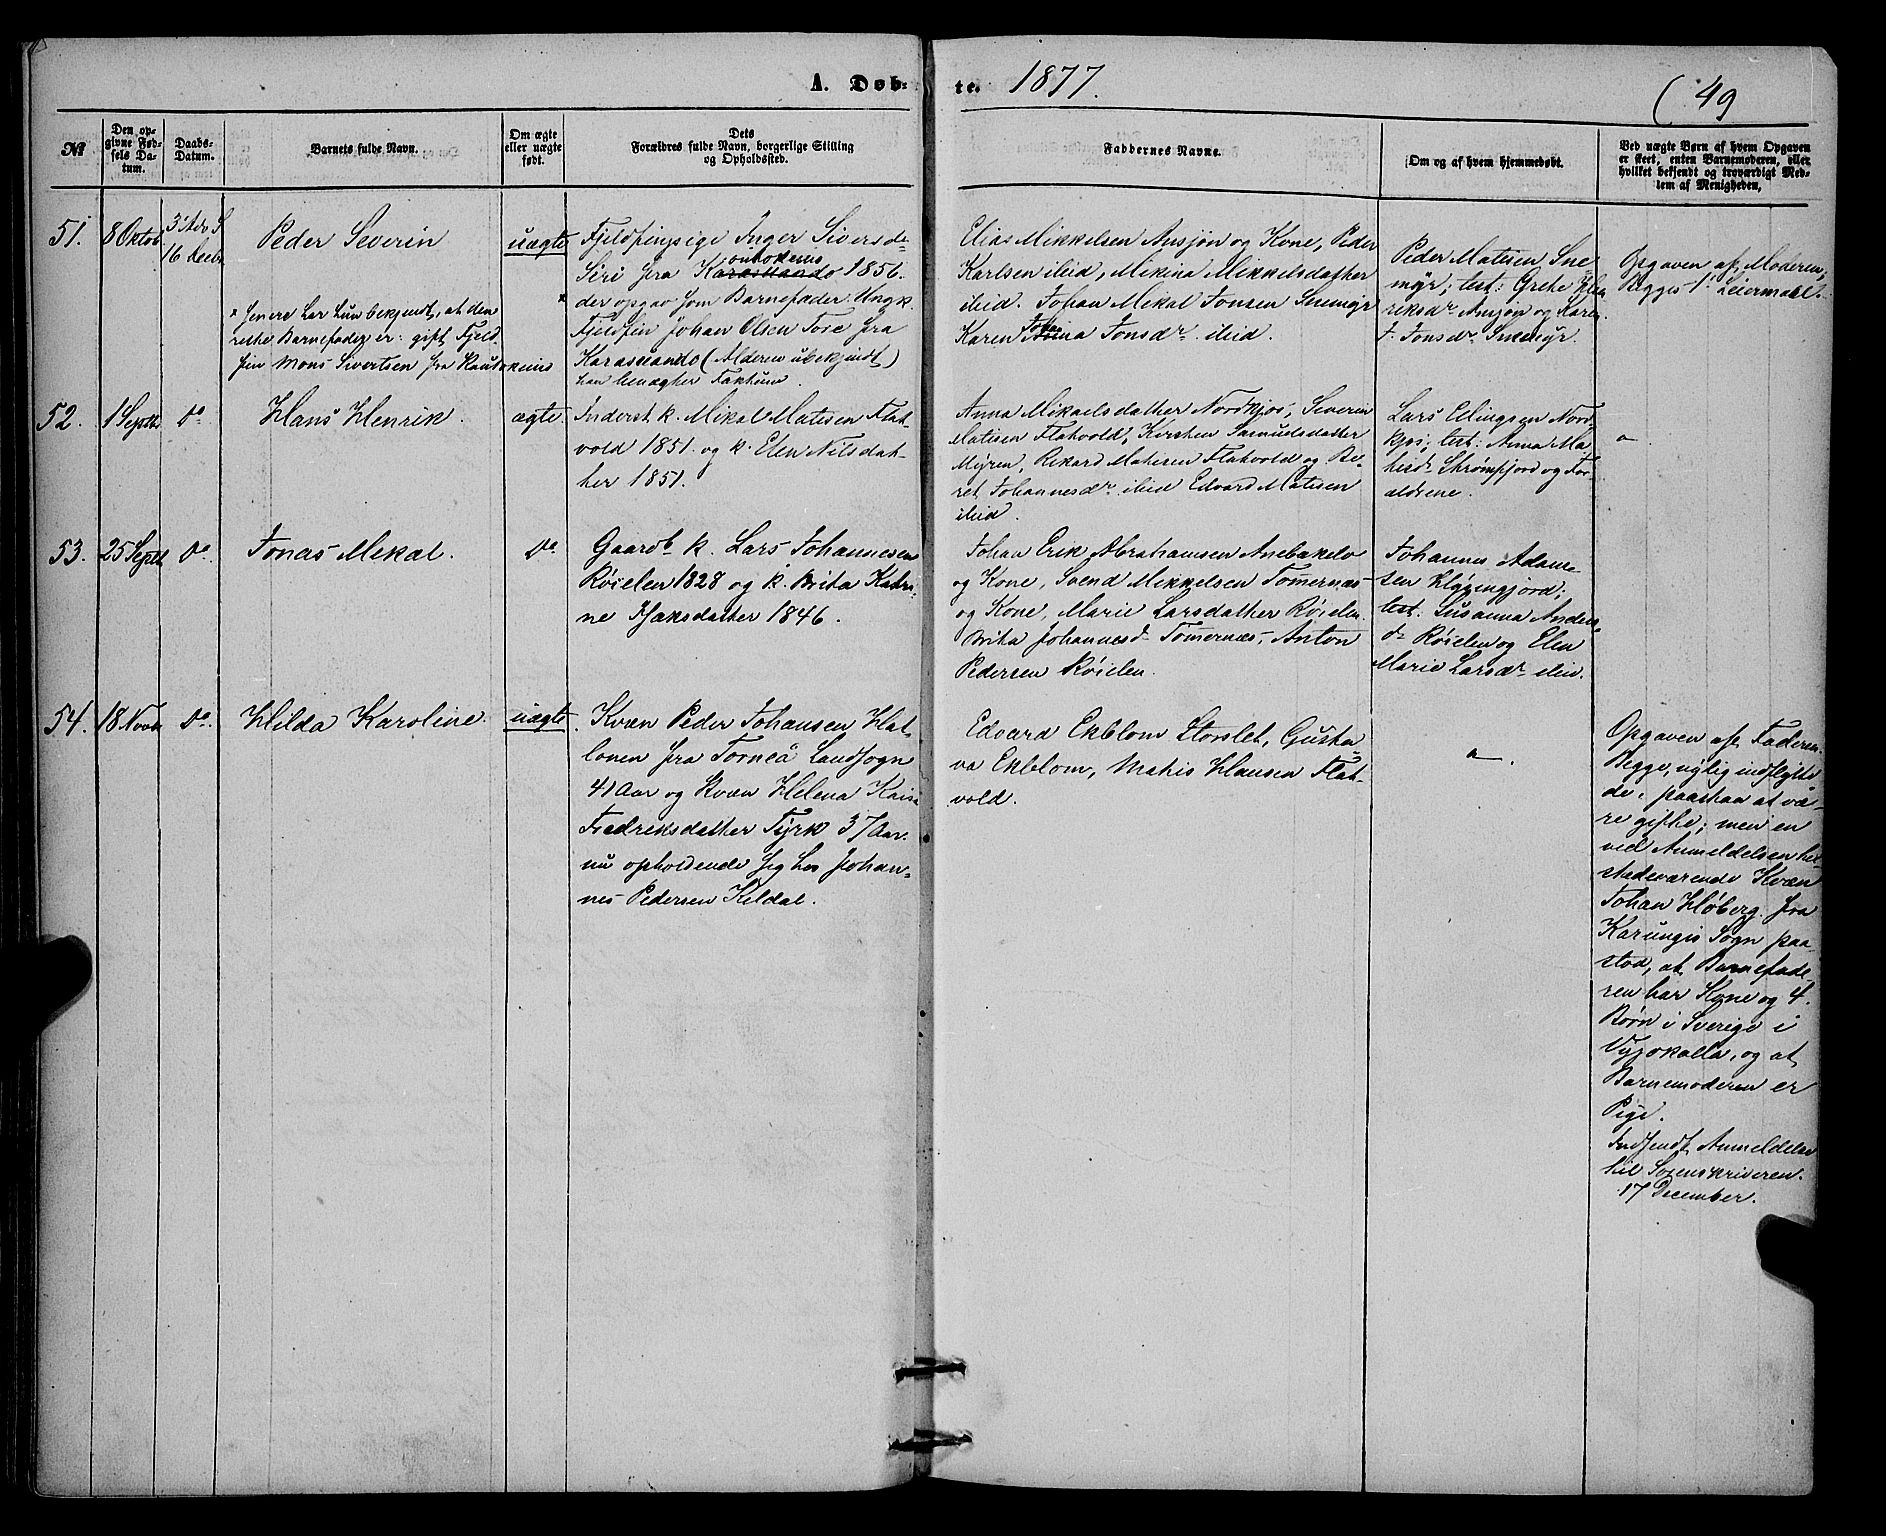 A. Døb-
te. 1877.
( 49
№
Den op-
givne Fød-
sels Da-
tum.
Daabs-
Datum.
Barnets fulde Navn.
Om ægte
eller uægte
født.
Dets
Forældres fulde Navn, borgerlige Stilling
og Opholdssted.
Faddernes Navne.
Om og af hvem hjemmedøbt.
Ved uægte Børn af hvem Opgaven
er skeet, enten Barnemoderen, eller
hvilket bekjendt og troværdigt Med-
lem af Menigheden.
51.
8 Oktob
3' Adv. S
16 Decbr
Peder Severin
x senere har hun bekjendt, at den
rette Barnefader er: gift Fjeld-
fin Mons Sivertsen fra Kautokeino
uægte
Fjeldfinpige Inger Siversda-
Siri fra Karasuando 1856.
outokeino
x der opgav som Barnefader: Ungk.
Fjeldfin Johan Olsen Tore fra
Karasuando (Alderen ubekjendt)
han benægter Faktum.
Elias Mikkelsen Ansjøn og Kone, Peder
Karlsen ibid, Mikina Mikkelsdatter
ibid. Johan Mikal Jonsen Snemyr
Karen Anna Jonsdr. ibid.
Peder Matisen Sne-
myr; test: Grethe
riksdr Ansjøn og Karen
J. Jonsdr. Snemyr.
Opgaven af Moderen;
Begges 1' Leiermaal.
52.
1 Septb
do
Hans Henrik.
ægte.
Inderst k. Mikal Matisen Flat-
vold 1851. og k. Elen Nilsdat-
ter 1851.
Anna Mikaelsdatter Nordkjos, Severin
Matisen Flatvold, Kirsten Samuelsdatter
Myren, Rikard Matisen Flatvold og Be-
ret Johannesdr. ibid Edvard Matisen
ibid.
Lars Ellingsen Nord-
kjos; test: Anna Ma-
tisdr Strømfjord og For-
ældrene.
53.
25 Septb
do
Jonas Mikal.
do
Gaardb. k. Lars Johannesen
Røielen 1828 og k. Brita Kathri-
ne Isaksdatter 1846.
Johan Erik Abrahamsen Anebakelv
og Kone, Svend Mikkelsen Tømernæs
og Kone, Marie Larsdatter Røielen.
Brita Johannesdr Tømernæs, Anton
Pedersen Røielen.
Johannes Adam-
sen Kløvingjord;
test: Susanna Anders
dr Røielen og Elen
Marie Larsdr ibid.
54.
18 Novb
do.
Hilda Karoline.
uægte.
Kvæn Peder Johansen Hat-
lonen fra Torneå Landsogn
41 Aar og Kvæn Helena Kaisa
Fredriksdatter Tyrk 37 Aar.
nu opholdende sig hos Johan-
nes Pedersen Kildal.
Edvard Ekblom Storslet, Gusta-
va Ekblom, Mathis Hansen Flat-
vold.
Opgaven af Faderen.
Begge, nylig indflytte-
de, paastaa at væ-
re gifte; men en
ved Anmeldelsen til-
stedeværende Kvæn
Johan Høberg. fra
Karungis Sogn paa-
stod, at Barnefade-
ren har Kone og 4.
Børn i Sverige i
og at
Barnemoderen er
Pige.
Indsendt Anmeldelse
til Sorenskriveren.
17 December.